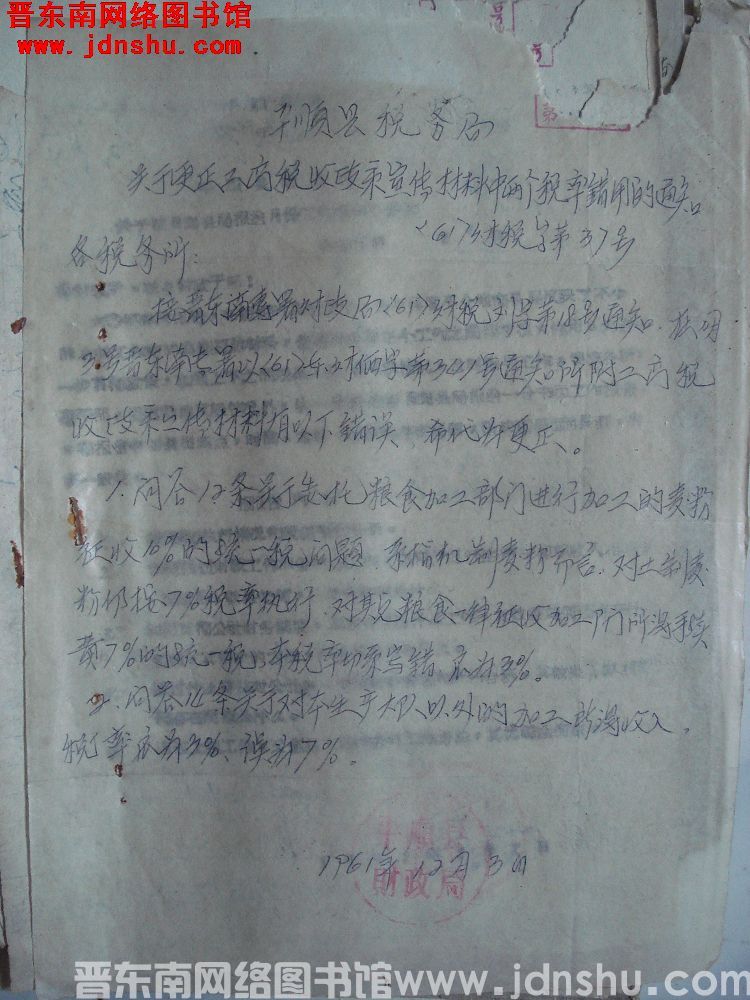 晋东南网络图书馆
www.jdnshu.com
平顺县税务局
关于更正工商税收政策宣传材料中两个税率错用的通知
〈61〉财税字第37号
各税务所:
接晋东南专署财政局〈61〉财税刘字第18号通知
3号晋东南专署以〈61〉东财 字第347号通知所附工商税
收政策宣传材料有以下错误,希代为更正。
1.问答12条关于委托粮食加工部门进行加工的麦粉
征收10%的统一税问题,系指机制麦粉而言,对土制麦
粉仍按7%税率执行,对其它粮食一律征收加工部门所得手续
费7%的统一税,本税率 系写错,应为3%。
2.问答14条关于对本生产大队以外的加工所得收入,
税率应为3%、误为7%。
1961年12月3日
平顺县
财政局
晋东南网络图书馆www.jdnshu.com